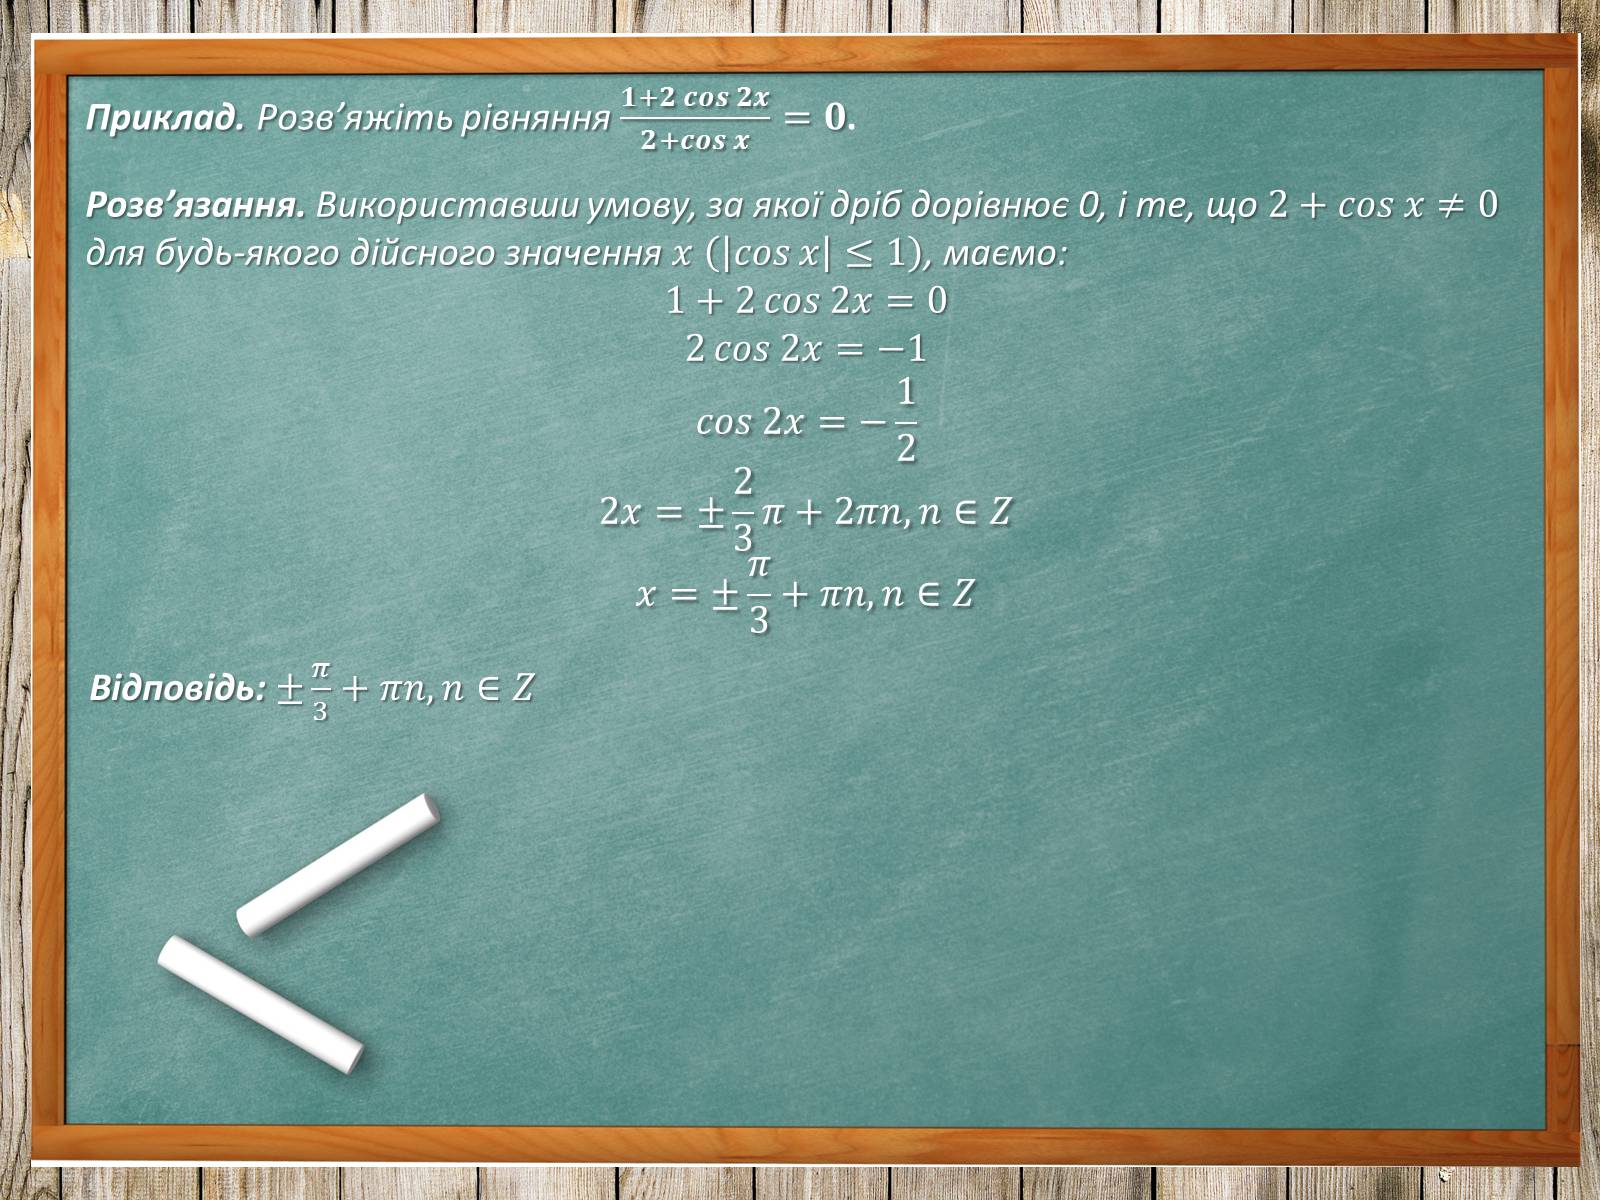 Приклад. Розв’яжіть рівняння (1+2 cos 2x)/(2+cos x) = 0.
Розв’язання. Використавши умову, за якої дріб дорівнює 0, і те, що 2 + cos x ≠ 0
для будь-якого дійсного значення x (|cos x| ≤ 1), маємо:
1 + 2 cos 2x = 0
2 cos 2x = −1
cos 2x = − 1/2
2x = ± 2/3 π + 2πn, n ∈ Z
x = ± π/3 + πn, n ∈ Z
Відповідь: ± π/3 + πn, n ∈ Z